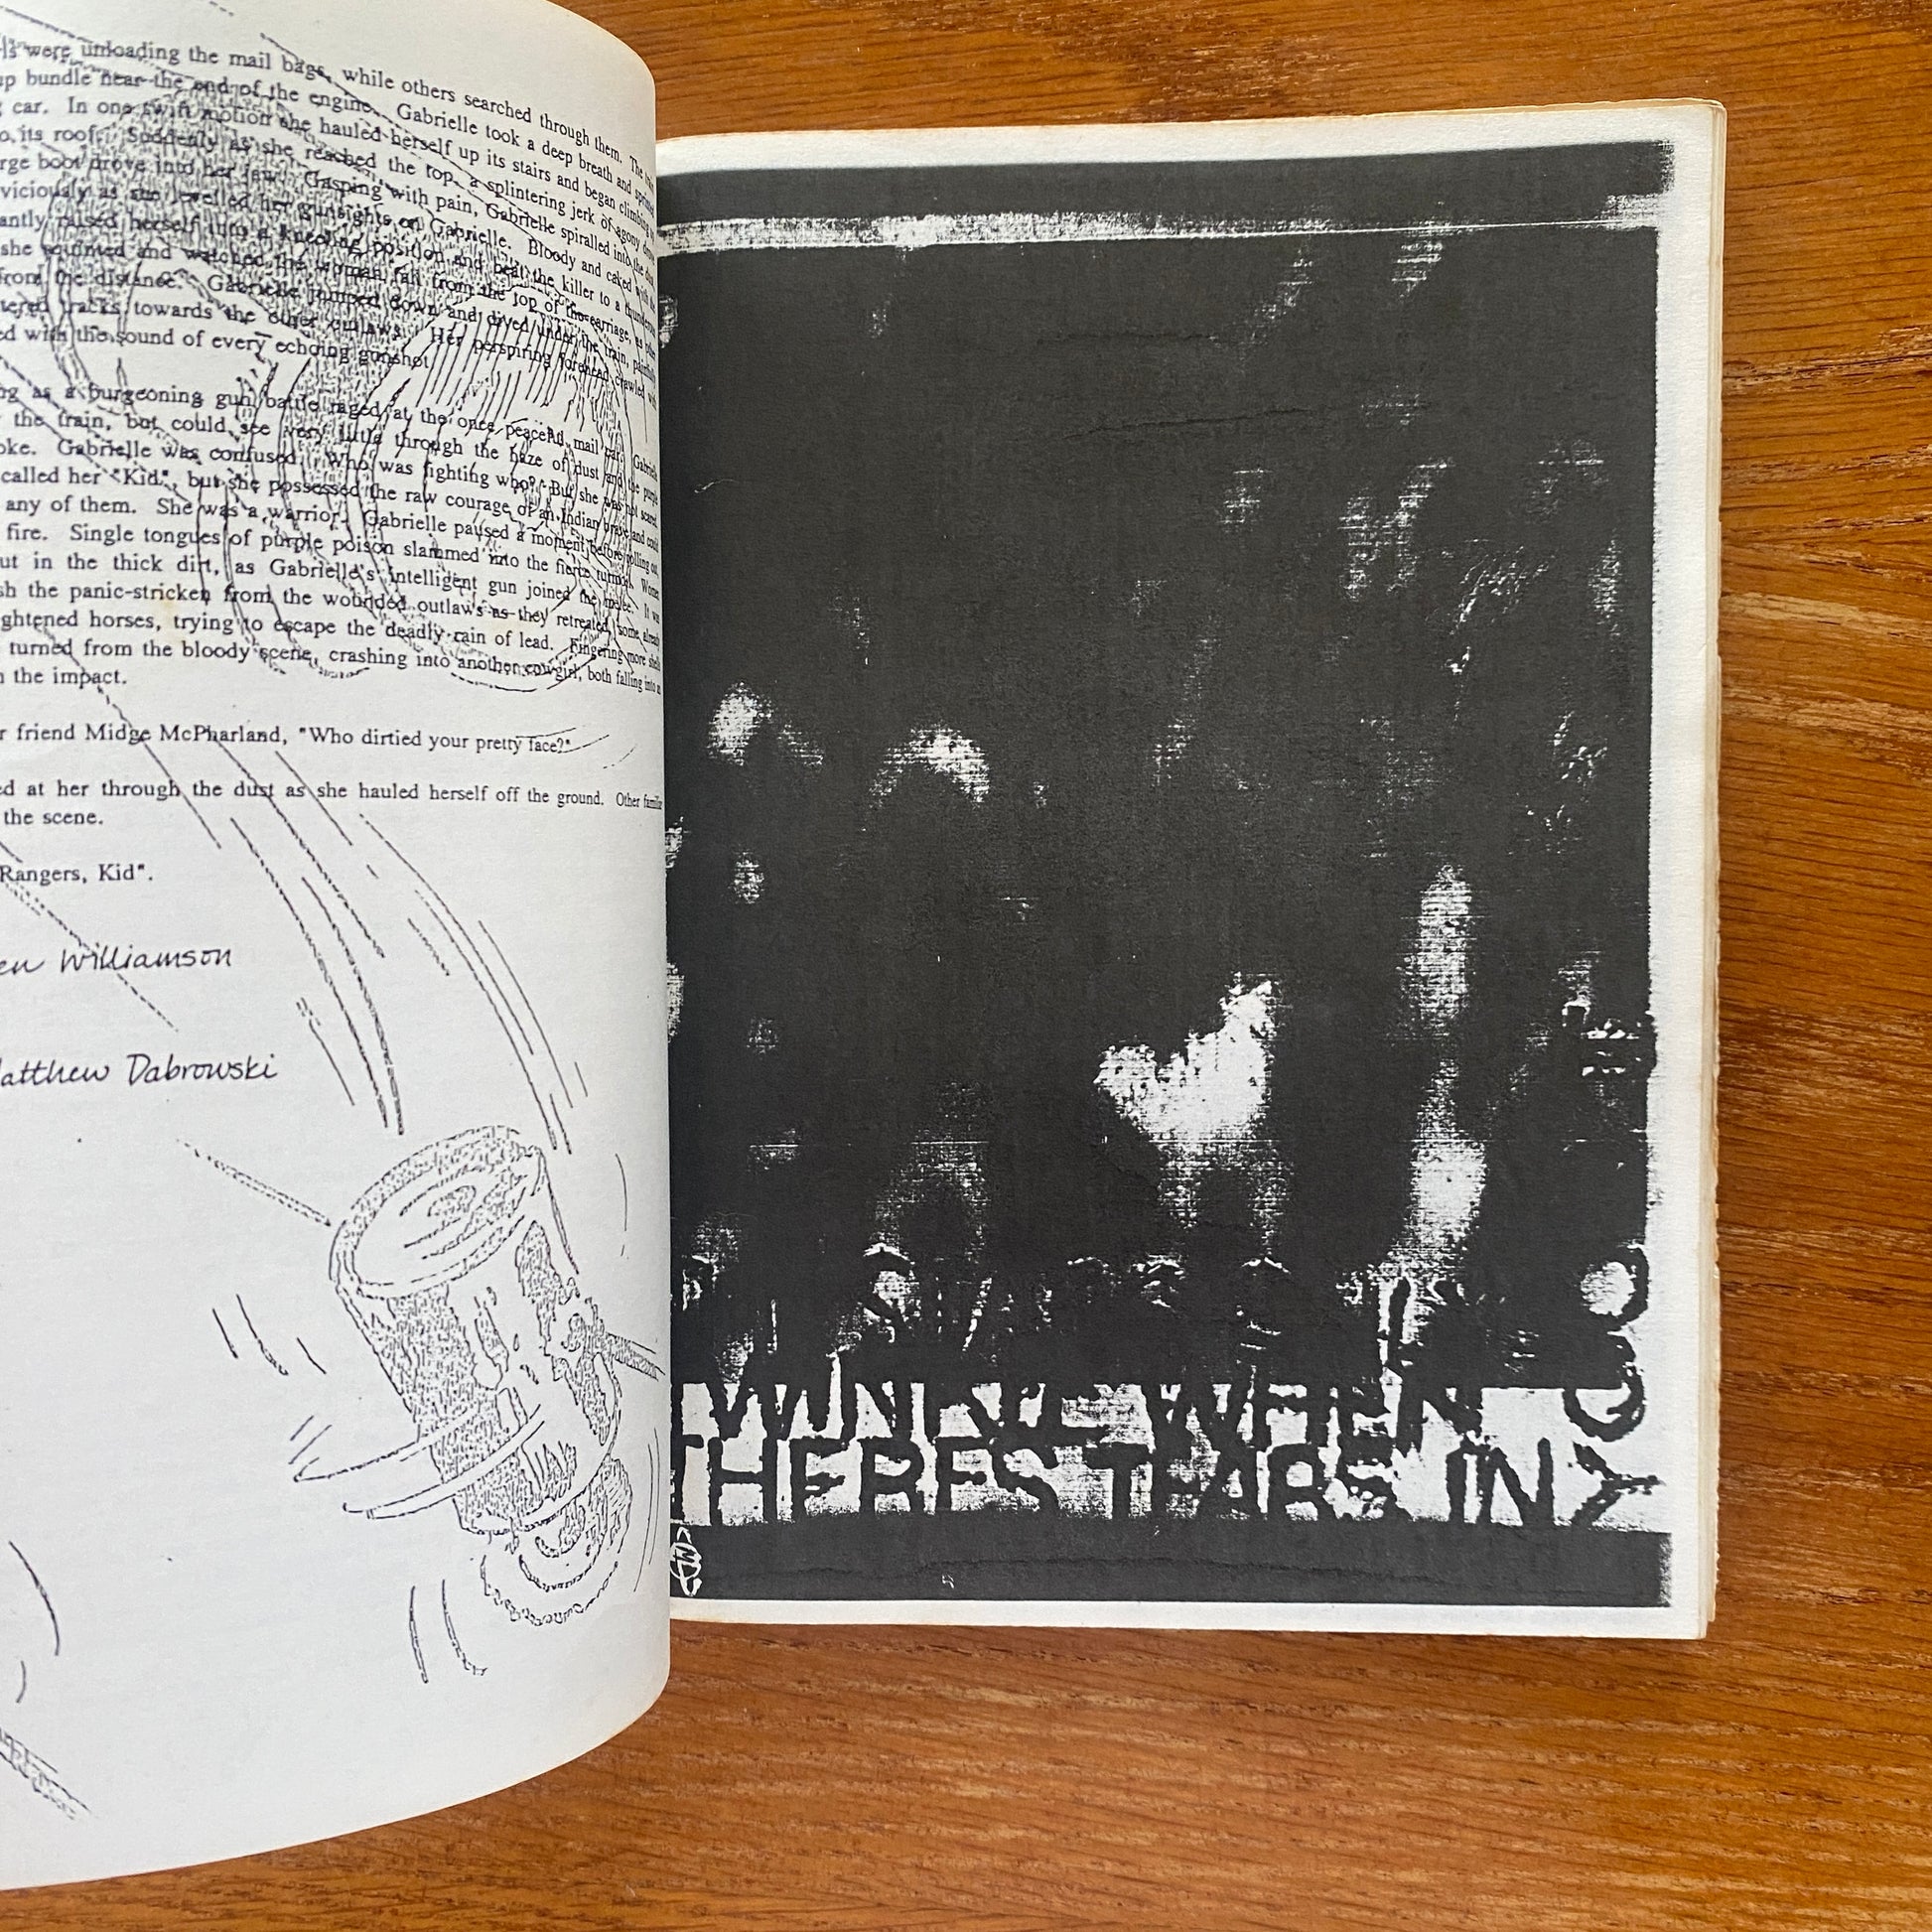 were unloading the mail bags, while others searched through them. The
up bundle near the end of the engine. Gabrielle took a deep breath and
car. In one swift motion she hauled herself up its stairs and began climbing
its roof. Suddenly as she reached the top, a splintering jerk of agony drove
boot drove into her jaw. Gasping with pain, Gabrielle spiralled into the
viciously as she levelled her gunsights on Gabrielle. Bloody and caked with
raised herself into a kneeling position and beat the killer to a
she squinted and watched the woman fall from the top of the carriage, as
from the distance. Gabrielle jumped down and dived under the train, painfully
tracks towards the other outlaws. Her perspiring forehead crawled with
with the sound of every echoing gunshot.
as a burgeoning gun battle raged at the once peaceful mail car. Gabrielle
the train, but could see very little through the haze of dust and the purple
Gabrielle was confused. Who was fighting who? But she was not scared.
called her "Kid", but she possessed the raw courage of an Indian brave and could
any of them. She was a warrior. Gabrielle paused a moment before rolling out
fire. Single tongues of purple poison slammed into the fierce turmoil. Women
in the thick dirt, as Gabrielle's intelligent gun joined the melee. It was
the panic-stricken from the wounded outlaws as they retreated, some already
horses, trying to escape the deadly rain of lead. Fingering more shells
turned from the bloody scene, crashing into another cowgirl, both falling into
the impact.
friend Midge McPharland, "Who dirtied your pretty face?"
at her through the dust as she hauled herself off the ground. Other familiar
the scene.
Rangers, Kid".
Williamson
atthew Dabrowski
TWINKLE WHEN
THERES TEARS IN